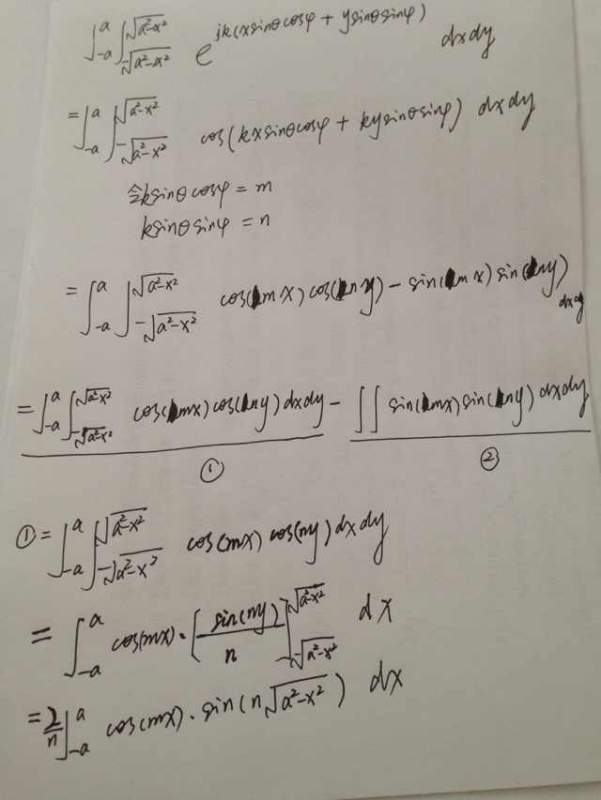 ∫_{-a}^{a} ∫_{-√(a²-x²)}^{√(a²-x²)} e^{jk(xsinθcosφ + ysinθsinφ)} dxdy
= ∫_{-a}^{a} ∫_{-√(a²-x²)}^{√(a²-x²)} cos(kxsinθcosφ + kysinθsinφ) dxdy
令ksinθcosφ = m
ksinθsinφ = n
= ∫_{-a}^{a} ∫_{-√(a²-x²)}^{√(a²-x²)} cos(mx)cos(ny) - sin(mx)sin(ny) dxdy
= ∫_{-a}^{a} ∫_{-√(a²-x²)}^{√(a²-x²)} cos(mx)cos(ny)dxdy - ∬ sin(mx)sin(ny)dxdy
① ②
① = ∫_{-a}^{a} ∫_{-√(a²-x²)}^{√(a²-x²)} cos(mx)cos(ny)dxdy
= ∫_{-a}^{a} cos(mx)·[sin(ny)/n]_{-√(a²-x²)}^{√(a²-x²)} dx
= 2/n ∫_{-a}^{a} cos(mx)·sin(n√(a²-x²)) dx